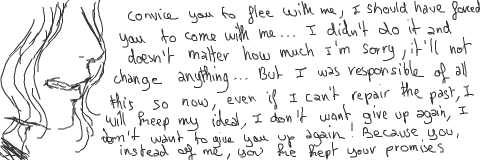 convice you to flee with me, I should have forced
you to come with me... I didn't do it and
doesn't matter how much I'm sorry, it'll not
change anything... But I was responsible of all
this so now, even if I can't repair the past, I
will keep my ideal, I don't want give up again, I
don't want to give you up again! Because you,
instead of me, you've kept your promises